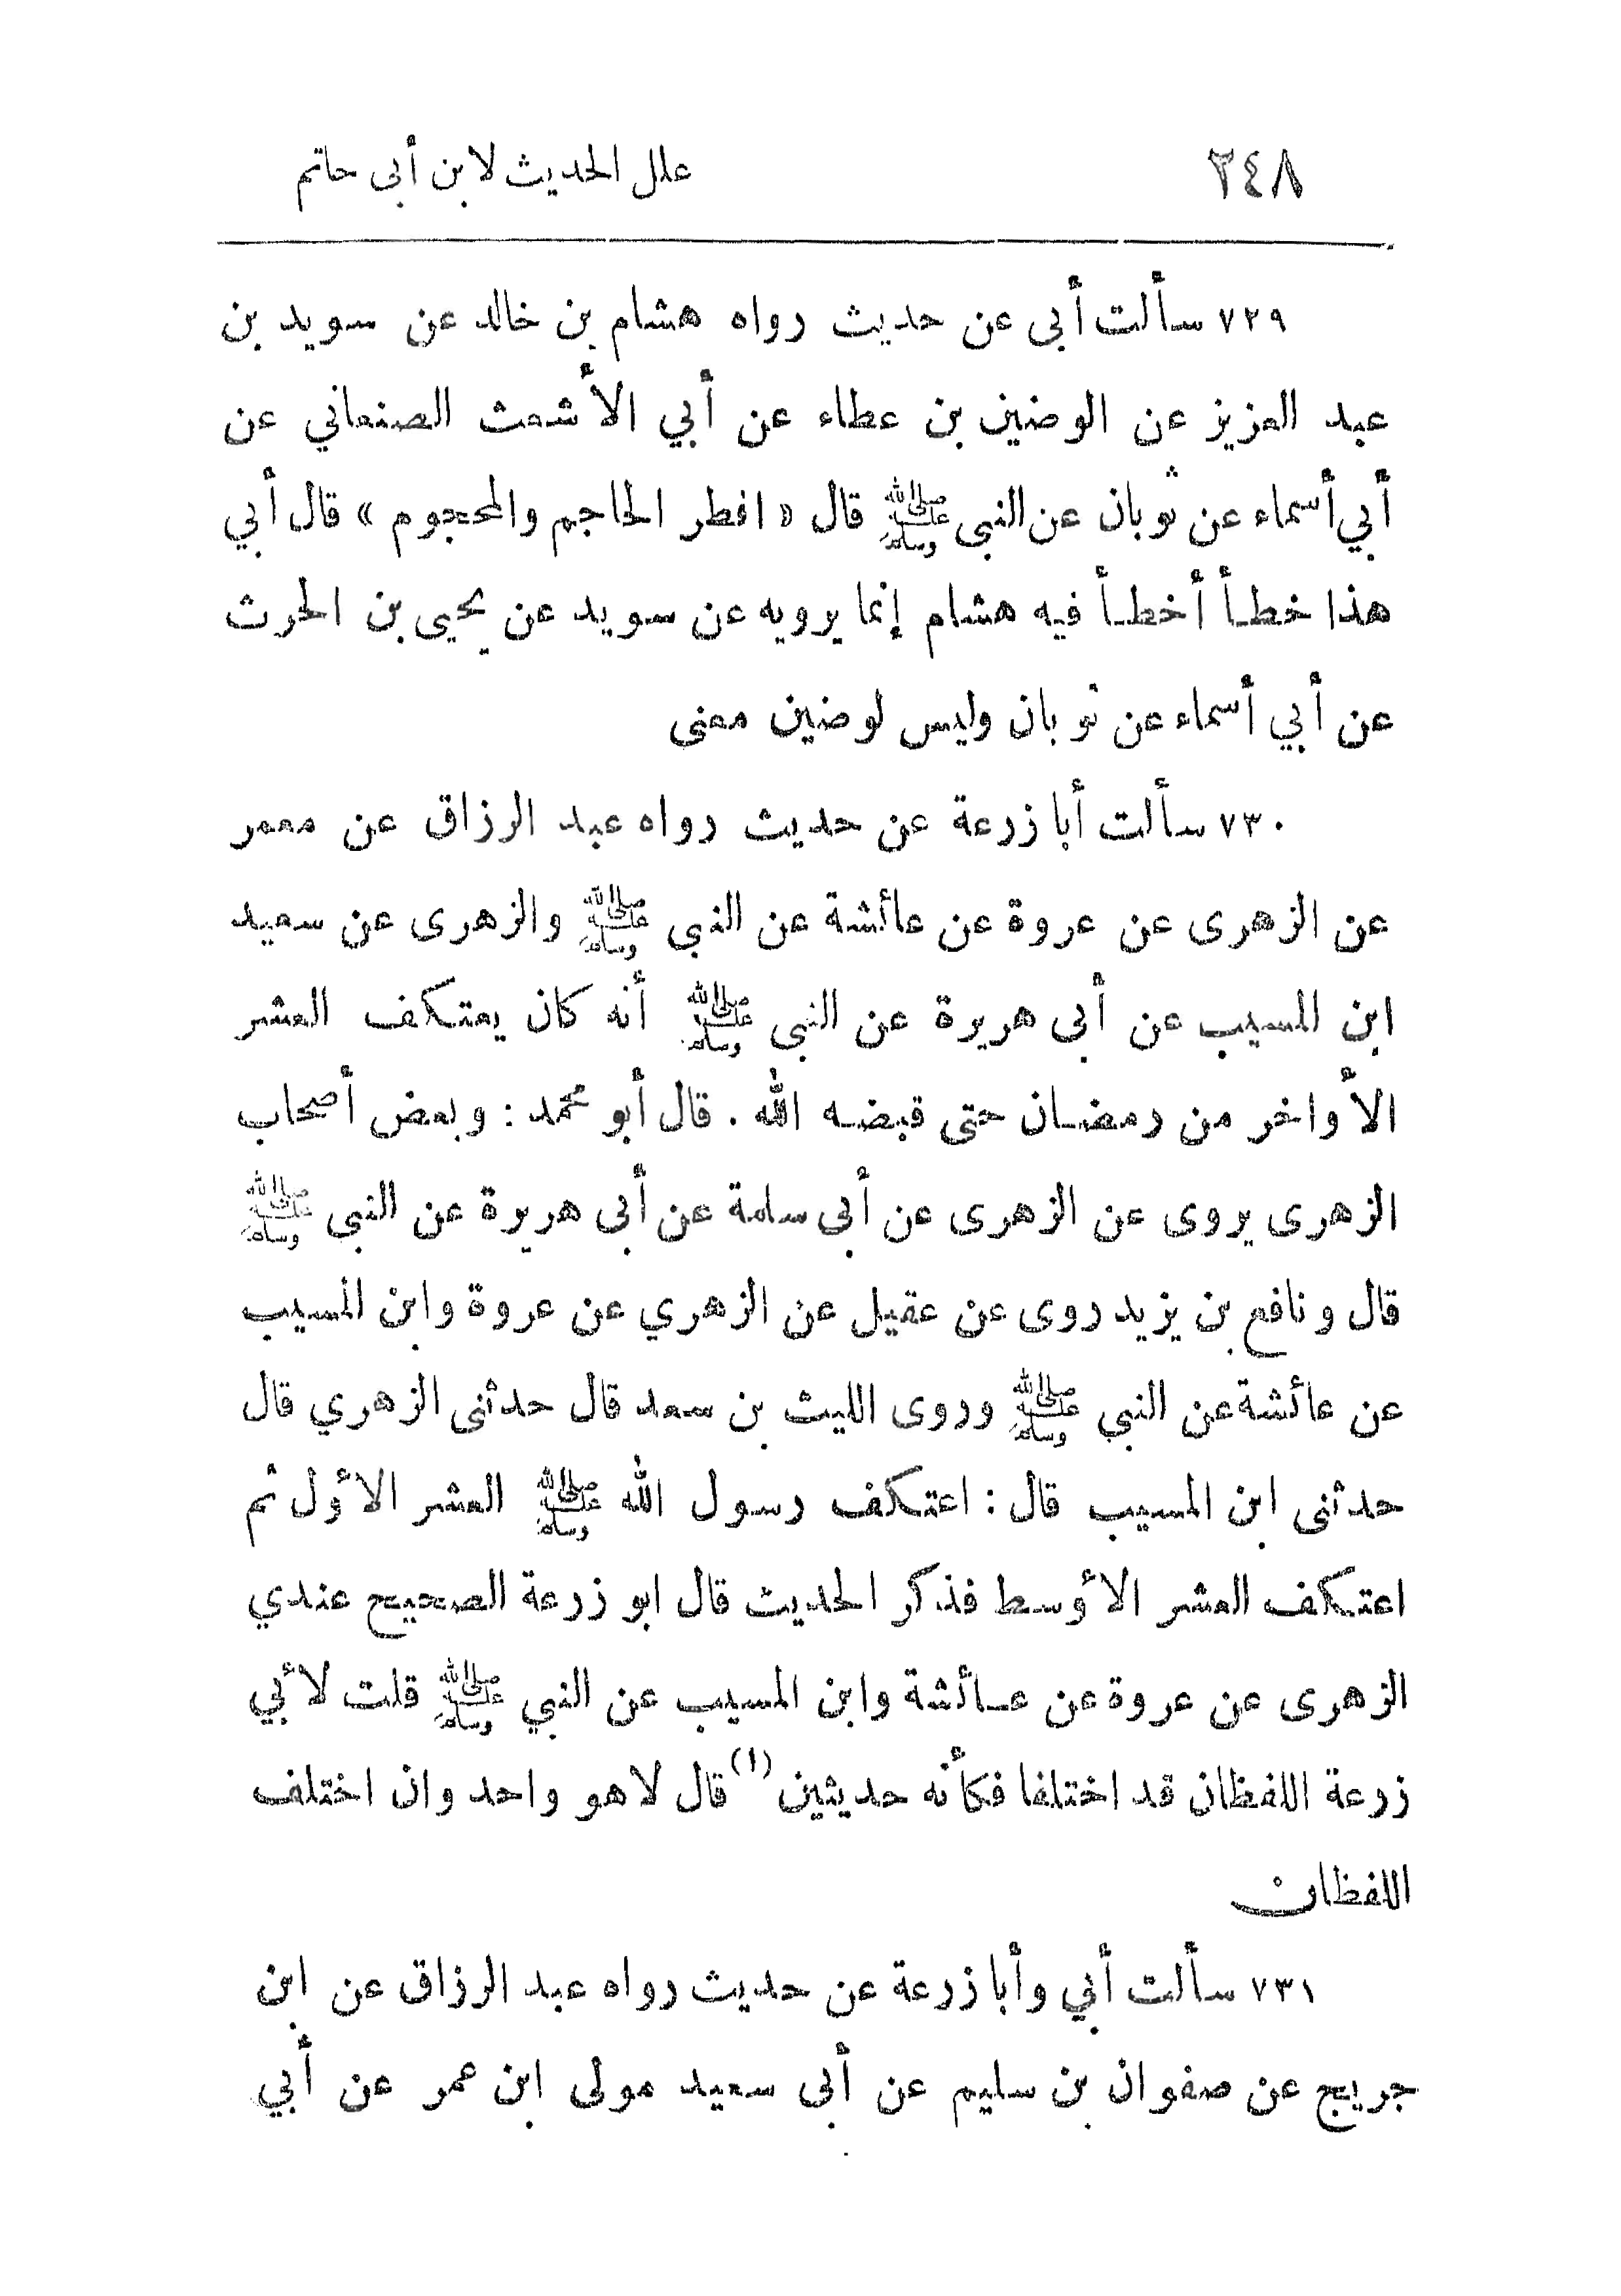 ٢٤٨ علل الحديث لابن أبى حاتم
٧٢٩ سألت أبى عن حديث رواه هشام بن خالد عن سويد بن
عبد العزيز عن الوضين بن عطاء عن أبي الأشعث الصنعاني عن
أبي أسماء عن ثوبان عن النبى ﷺ قال « افطر الحاجم والمحجوم » قال أبي
هذا خطأ أخطأ فيه هشام إنما يرويه عن سويد عن يحيى بن الحرث
عن أبي أسماء عن ثوبان وليس لوضين معنى
٧٣٠ سألت أبا زرعة عن حديث رواه عبد الرزاق عن معمر
عن الزهرى عن عروة عن عائشة عن النبي ﷺ والزهرى عن سعيد
ابن المسيب عن أبى هريرة عن النبى ﷺ أنه كان يعتكف العشر
الأواخر من رمضان حتى قبضه الله . قال أبو محمد : وبعض أصحاب
الزهرى يروى عن الزهرى عن أبى سلمة عن أبى هريرة عن النبى ﷺ
قال ونافع بن يزيد روى عن عقيل عن الزهري عن عروة وابن المسيب
عن عائشة عن النبي ﷺ وروى الليث بن سعد قال حدثنى الزهري قال
حدثنى ابن المسيب قال : اعتكف رسول الله ﷺ العشر الأول ثم
اعتكف العشر الأوسط فذكر الحديث قال ابو زرعة الصحيح عندي
الزهرى عن عروة عن عائشة وابن المسيب عن النبي ﷺ قلت لأبي
زرعة اللفظان قد اختلفا فكأنه حديثين (١) قال لا هو واحد وان اختلف
اللفظان
٧٣١ سألت أبي وأبا زرعة عن حديث رواه عبد الرزاق عن ابن
جريج عن صفوان بن سليم عن أبى سعيد مولى ابن عمر عن أبي